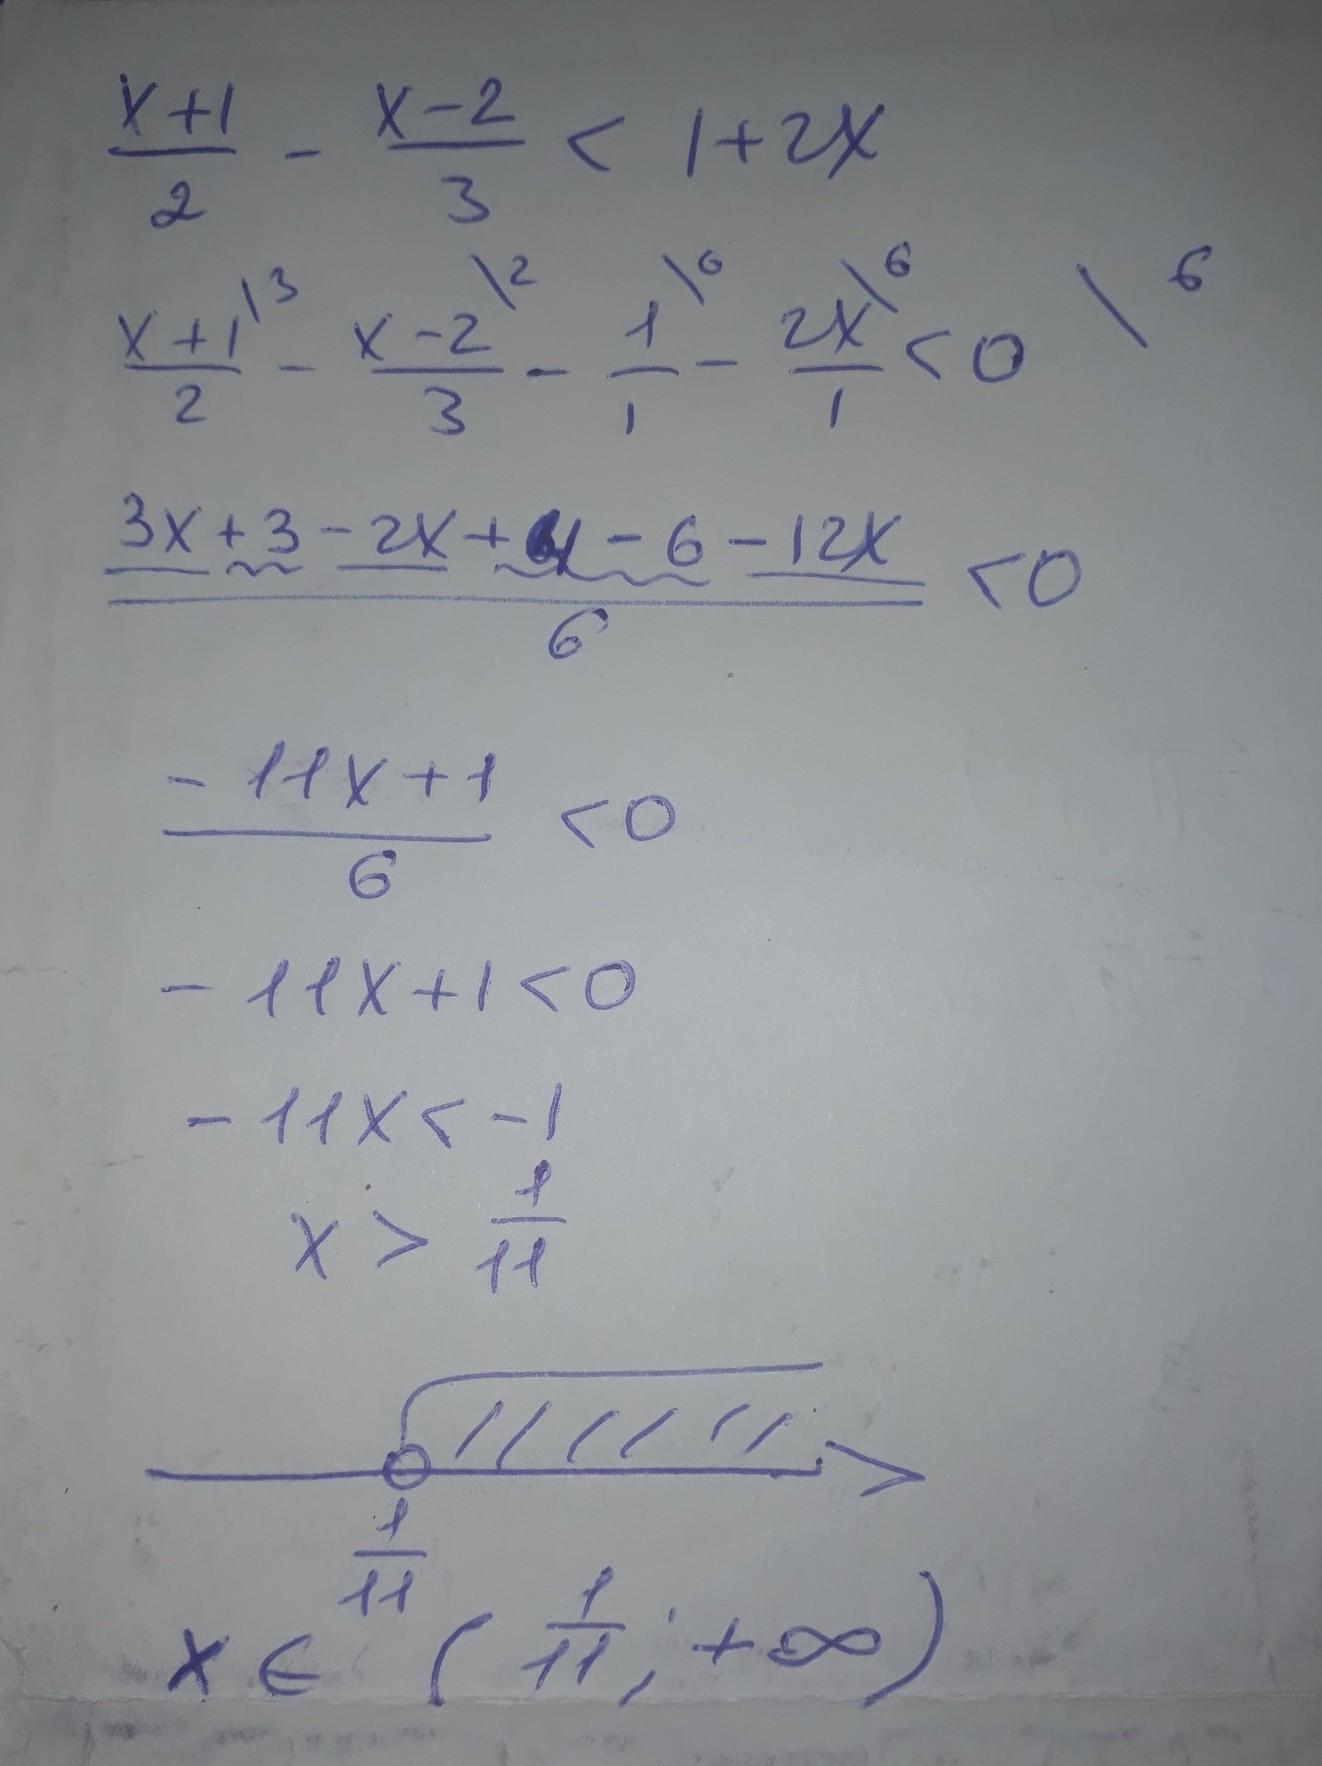 x+1/2 - x-2/3 < 1+2x
x+1\3/2 - x-2\2/3 - 1\6/1 - 2x\6/1 < 0 \ 6
3x+3-2x+4-6-12x/6 < 0
-11x+1/6 < 0
-11x+1<0
-11x<-1
x > 1/11
1/11
x ∈ (1/11; +∞)